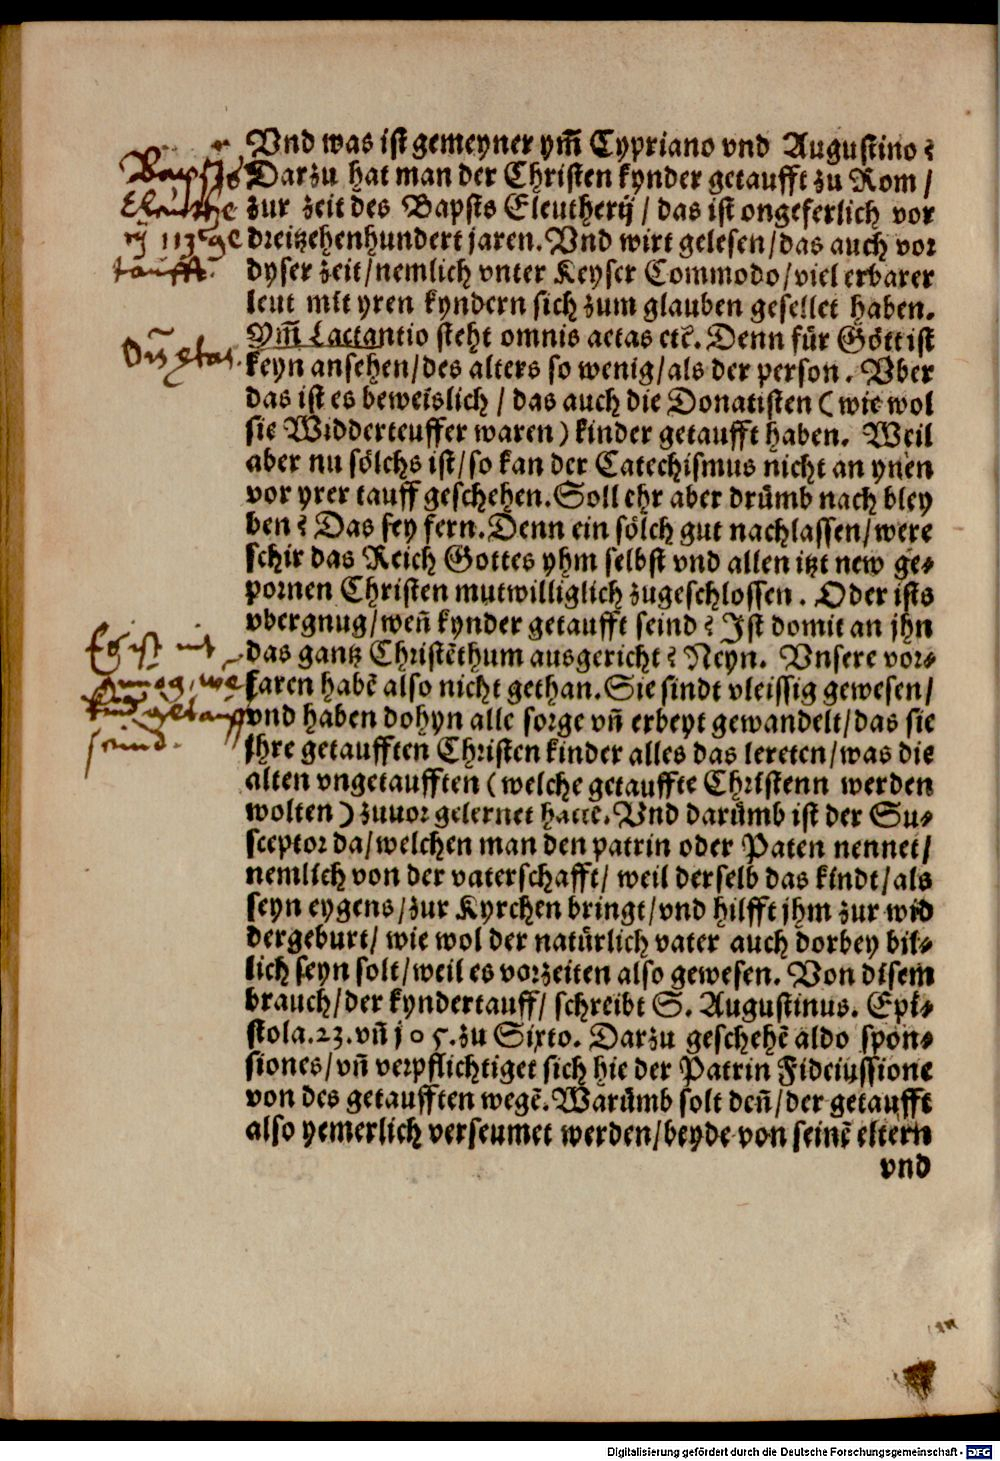 Vnd was ist gemeyner ym̃ Cypriano vnd Augustino?
Darzu hat man der Christen kynder getaufft zu Rom /
zur zeit des Bapsts Eleutherij / das ist ongeferlich vor
dreitzehenhundert jaren. Vnd wirt gelesen / das auch vor
dyser zeit / nemlich vnter Keyser Commodo / viel erbarer
leut mit yren kyndern sich zum glauben gesellet haben.
Ym̃ Lactantio steht omnis aetas etc̃. Denn für Gött ist
keyn ansehen / des alters so wenig / als der person. Vber
das ist es beweislich / das auch die Donatisten (wie wol
sie Widderteuffer waren) kinder getaufft haben. Weil
aber nu sölchs ist / so kan der Catechismus nicht an ynen
vor yrer tauff geschehen. Soll ehr aber drümb nach bley
ben? Das sey fern. Denn ein sölch gut nachlassen / were
schir das Reich Gottes yhm selbst vnd allen itzt new ge⸗
pornen Christen mutwilliglich zugeschlossen. Oder ists
vbergnug / weñ kynder getaufft seind? Ist domit an jhn
das gantz Christẽthum ausgericht? Neyn. Vnsere vor⸗
faren habẽ also nicht gethan. Sie sindt vleissig gewesen /
vnd haben dohyn alle sorge vñ erbeyt gewandelt / das sie
jhre getaufften Christen kinder alles das lereten / was die
alten vngetaufften (welche getauffte Christenn werden
wolten) zuuor gelernet hattẽ. Vnd darümb ist der Su⸗
sceptor da / welchen man den patrin oder Paten nennet /
nemlich von der vaterschafft / weil derselb das kindt / als
seyn eygens / zur Kyrchen bringt / vnd hilfft jhm zur wid
dergeburt / wie wol der natürlich vater auch dorbey bil⸗
lich seyn solt / weil es vorzeiten also gewesen. Von disem
brauch / der kyndertauff / schreibt S. Augustinus. Epi⸗
stola. 23. vñ 105. zu Sixto. Darzu geschehẽ aldo spon⸗
siones / vñ verpflichtiget sich hie der Patrin Fideiussione
von des getaufften wegẽ. Warümb solt deñ / der getaufft
also yemerlich verseumet werden / beyde von seinẽ eltern
vnd
Bapsts
Eleuthe
rij ge
taufft.
Es ist nit
gnug, we
kind getauff
seind.
Digitalisierung gefördert durch die Deutsche Forschungsgemeinschaft - DFG